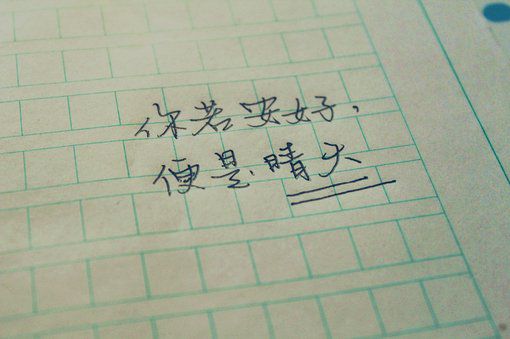 你若安好，
便是晴天